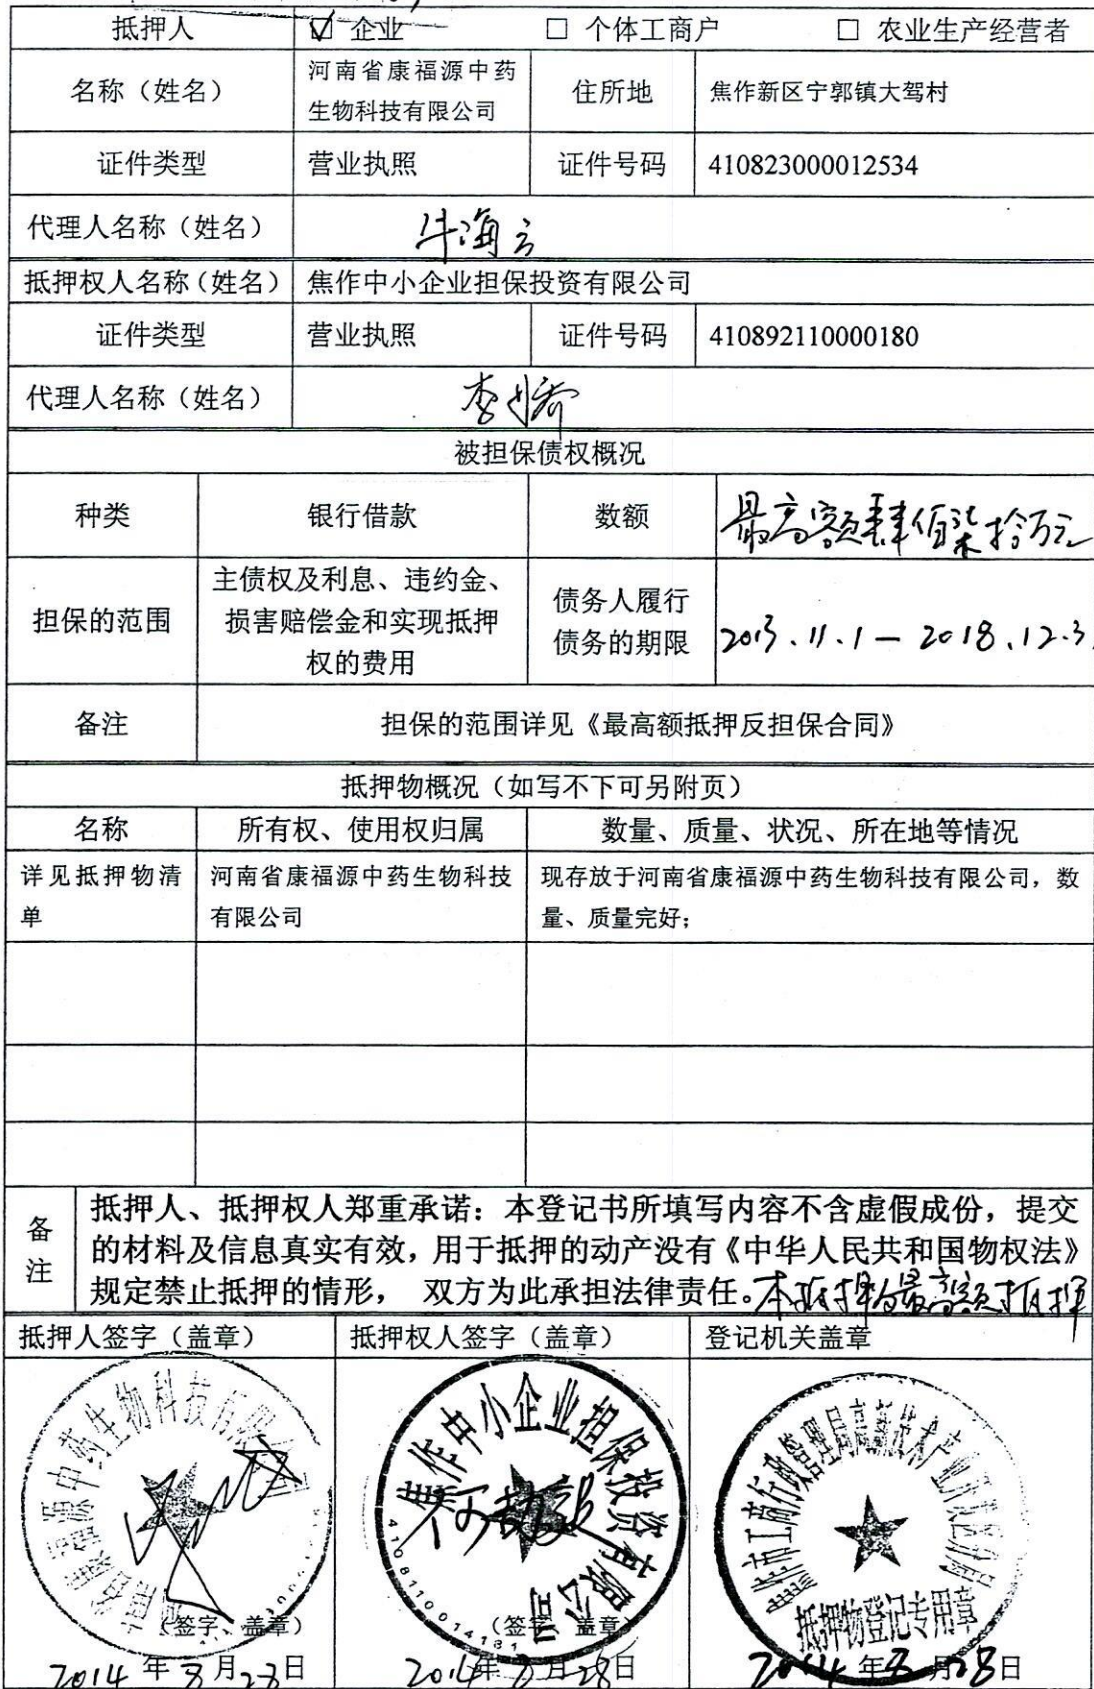 抵押人 ☑ 企业 □ 个体工商户 □ 农业生产经营者
名称（姓名） 河南省康福源中药生物科技有限公司 住所地 焦作新区宁郭镇大驾村
证件类型 营业执照 证件号码 410823000012534
代理人名称（姓名） 牛海云
抵押权人名称（姓名） 焦作中小企业担保投资有限公司
证件类型 营业执照 证件号码 410892110000180
代理人名称（姓名） 李
被担保债权概况
种类 银行借款 数额 最高额肆佰柒拾万元
担保的范围 主债权及利息、违约金、损害赔偿金和实现抵押权的费用 债务人履行债务的期限 2013.11.1－2018.12.3
备注 担保的范围详见《最高额抵押反担保合同》
抵押物概况（如写不下可另附页）
名称 所有权、使用权归属 数量、质量、状况、所在地等情况
详见抵押物清单 河南省康福源中药生物科技有限公司 现存放于河南省康福源中药生物科技有限公司，数量、质量完好；
备注 抵押人、抵押权人郑重承诺：本登记书所填写内容不含虚假成份，提交
的材料及信息真实有效，用于抵押的动产没有《中华人民共和国物权法》
规定禁止抵押的情形， 双方为此承担法律责任。本抵押为最高额抵押
抵押人签字（盖章） 抵押权人签字（盖章） 登记机关盖章
河南省康福源中药生物科技有限公司
焦作中小企业担保投资有限公司
4108110014181
焦作市工商行政管理局高新技术产业开发区分局
抵押物登记专用章
（签字、盖章） （签字、盖章）
2014 年 月 日 2014 年 月 28 日 2014 年 月 28 日